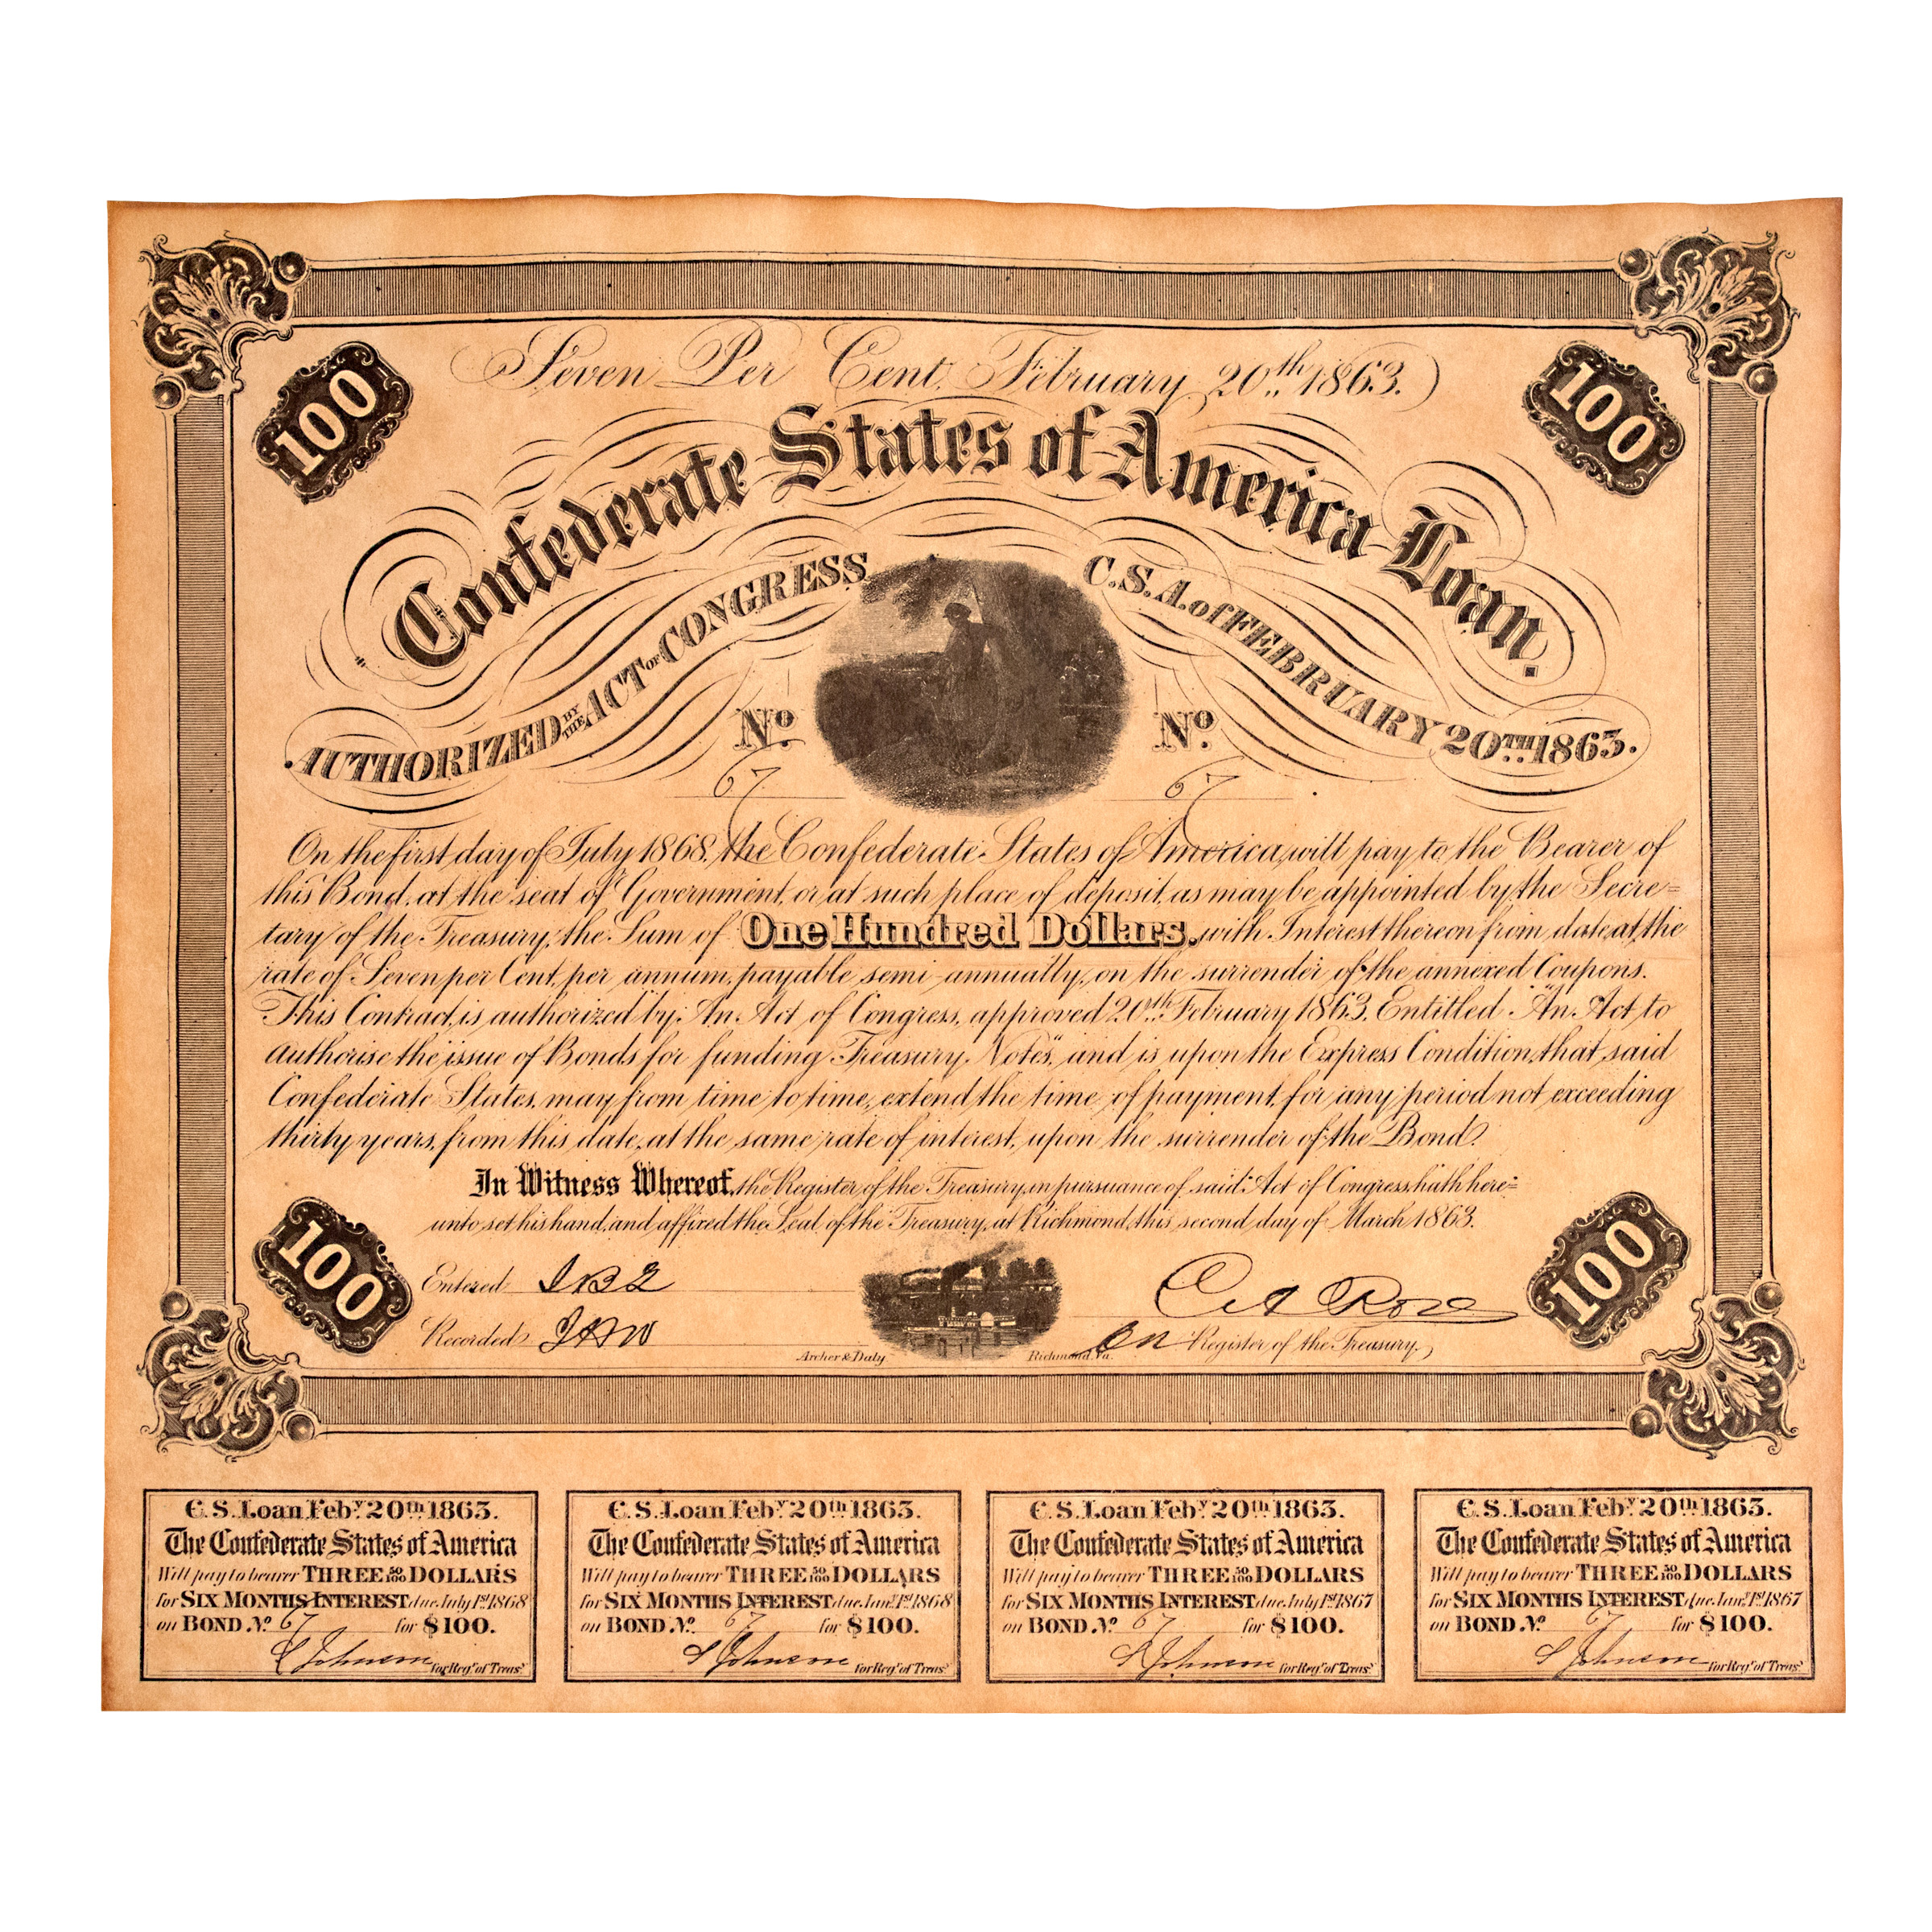 Seven Per Cent. February 20th 1863.
100
100
Confederate States of America Loan.
AUTHORIZED BY THE ACT OF CONGRESS C.S.A. of FEBRUARY 20TH 1863.
No. No.
67 67
On the first day of July 1868, the Confederate States of America, will pay to the Bearer of
this Bond, at the seat of Government, or at such place of deposit, as may be appointed by the Secre=
tary of the Treasury, the Sum of One Hundred Dollars, with Interest thereon from date, at the
rate of Seven per Cent, per annum, payable semi-annually, on the surrender of the annexed Coupons.
This Contract, is authorized by: An Act of Congress, approved 20th February 1863. Entitled "An Act, to
authorise the issue of Bonds for funding Treasury Notes", and is upon the Express Condition, that said
Confederate States, may from time to time, extend the time of payment, for any period not exceeding
thirty years, from this date, at the same rate of interest, upon the surrender of the Bond.
In Witness Whereof, the Register of the Treasury, in pursuance of said Act of Congress, hath here=
unto set his hand, and affixed the Seal of the Treasury, at Richmond, this second day of March 1863.
100
100
Entered
Recorded
C A Rose
Archer & Daly Richmond, Va. Register of the Treasury,
C.S. Loan Feby 20th 1863.
The Confederate States of America
Will pay to bearer THREE 50/100 DOLLARS
for SIX MONTHS INTEREST due July 1st 1868
on BOND No. 67 for $100.
S Johnson for Regr of Treasy
C.S. Loan Feby 20th 1863.
The Confederate States of America
Will pay to bearer THREE 50/100 DOLLARS
for SIX MONTHS INTEREST due Jany 1st 1868
on BOND No. 67 for $100.
S Johnson for Regr of Treasy
C.S. Loan Feby 20th 1863.
The Confederate States of America
Will pay to bearer THREE 50/100 DOLLARS
for SIX MONTHS INTEREST due July 1st 1867
on BOND No. 67 for $100.
S Johnson for Regr of Treasy
C.S. Loan Feby 20th 1863.
The Confederate States of America
Will pay to bearer THREE 50/100 DOLLARS
for SIX MONTHS INTEREST due Jany 1st 1867
on BOND No. 67 for $100.
S Johnson for Regr of Treasy